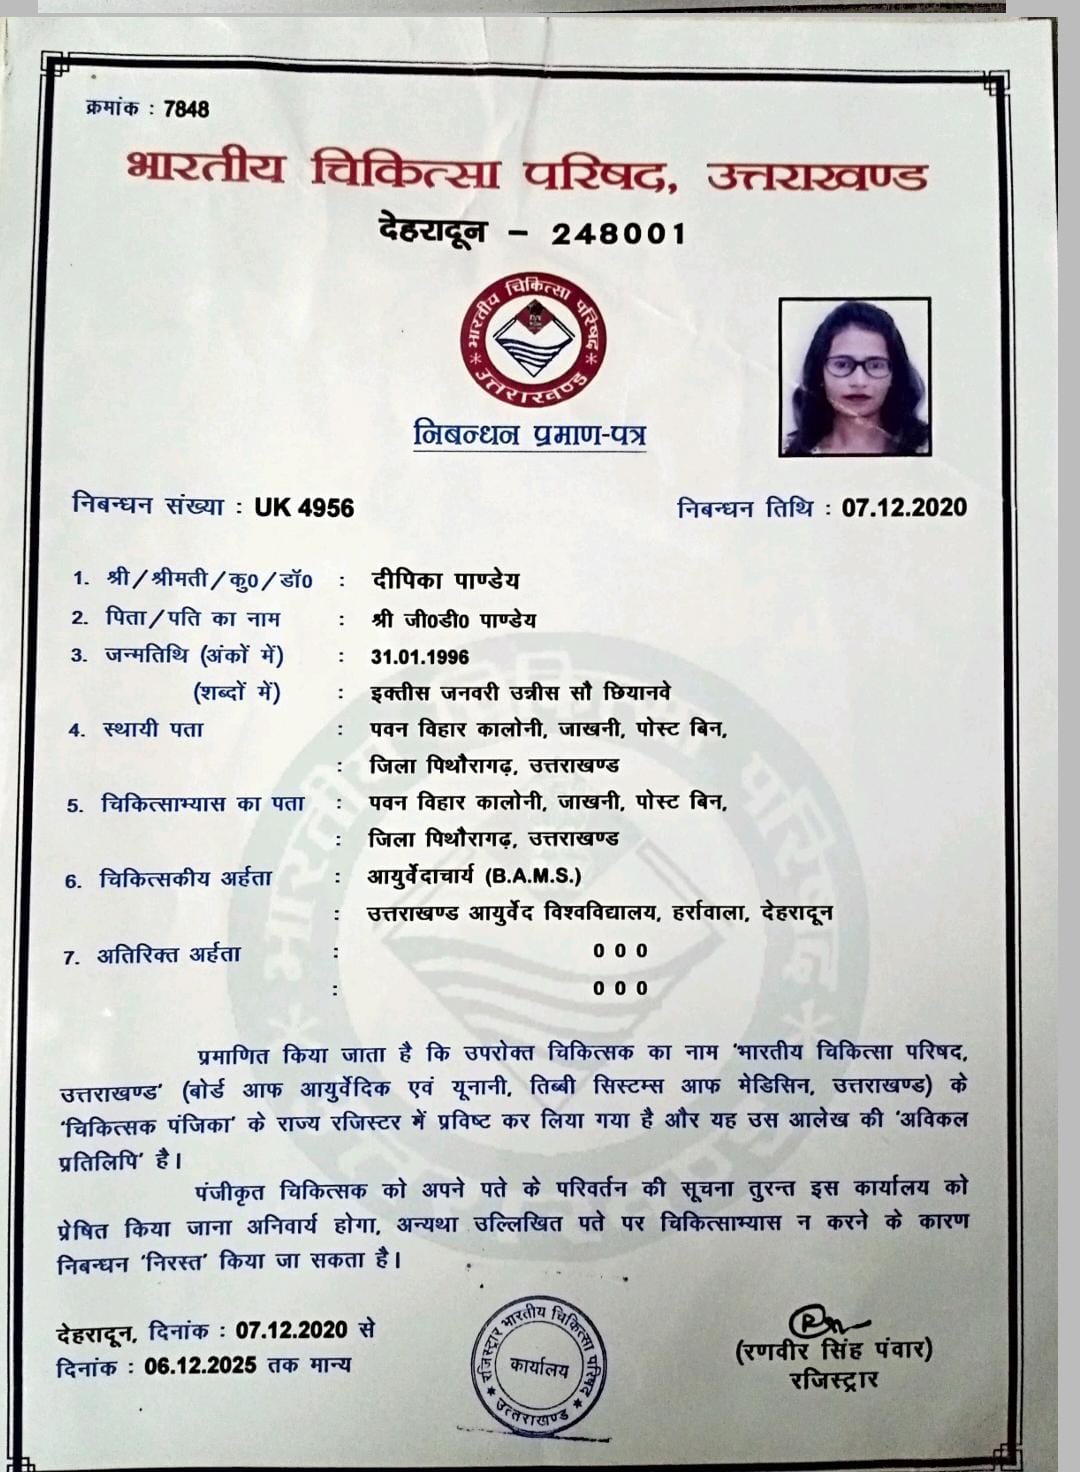 क्रमांक : 7848
भारतीय चिकित्सा परिषद, उत्तराखण्ड
देहरादून – 248001
* भारतीय चिकित्सा परिषद * उत्तराखण्ड
निबन्धन प्रमाण-पत्र
निबन्धन संख्या : UK 4956 निबन्धन तिथि : 07.12.2020
1. श्री/श्रीमती/कु0/डॉ0 : दीपिका पाण्डेय
2. पिता/पति का नाम : श्री जी0डी0 पाण्डेय
3. जन्मतिथि (अंकों में) : 31.01.1996
(शब्दों में) : इक्तीस जनवरी उन्नीस सौ छियानवे
4. स्थायी पता : पवन विहार कालोनी, जाखनी, पोस्ट बिन,
: जिला पिथौरागढ़, उत्तराखण्ड
5. चिकित्साभ्यास का पता : पवन विहार कालोनी, जाखनी, पोस्ट बिन,
: जिला पिथौरागढ़, उत्तराखण्ड
6. चिकित्सकीय अर्हता : आयुर्वेदाचार्य (B.A.M.S.)
: उत्तराखण्ड आयुर्वेद विश्वविद्यालय, हर्रावाला, देहरादून
7. अतिरिक्त अर्हता : 0 0 0
: 0 0 0
प्रमाणित किया जाता है कि उपरोक्त चिकित्सक का नाम 'भारतीय चिकित्सा परिषद,
उत्तराखण्ड' (बोर्ड आफ आयुर्वेदिक एवं यूनानी, तिब्बी सिस्टम्स आफ मेडिसिन, उत्तराखण्ड) के
'चिकित्सक पंजिका' के राज्य रजिस्टर में प्रविष्ट कर लिया गया है और यह उस आलेख की 'अविकल
प्रतिलिपि' है।
पंजीकृत चिकित्सक को अपने पते के परिवर्तन की सूचना तुरन्त इस कार्यालय को
प्रेषित किया जाना अनिवार्य होगा, अन्यथा उल्लिखित पते पर चिकित्साभ्यास न करने के कारण
निबन्धन 'निरस्त' किया जा सकता है।
देहरादून, दिनांक : 07.12.2020 से
दिनांक : 06.12.2025 तक मान्य
रजिस्ट्रार भारतीय चिकित्सा परिषद * उत्तराखण्ड *
कार्यालय
(रणवीर सिंह पंवार)
रजिस्ट्रार